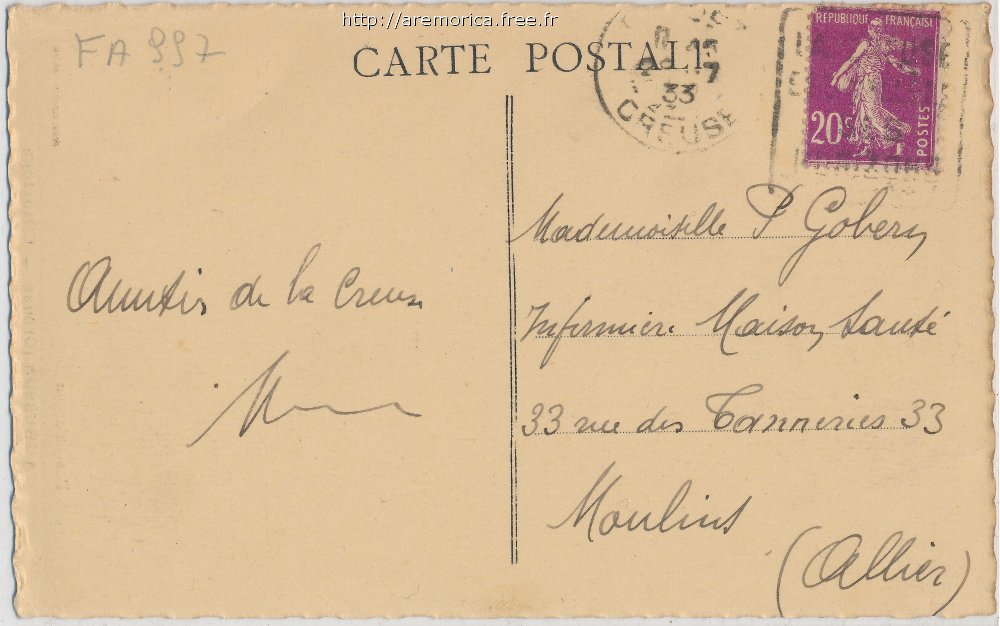 http://aremorica.free.fr
FA 997
CARTE POSTALE
33
CREUSE
REPUBLIQUE FRANÇAISE
20c
POSTES
Amitiés de la Creuse
Mademoiselle P Gobery
Infirmière Maison Santé
33 rue des Tanneries 33
Moulins
(Allier)